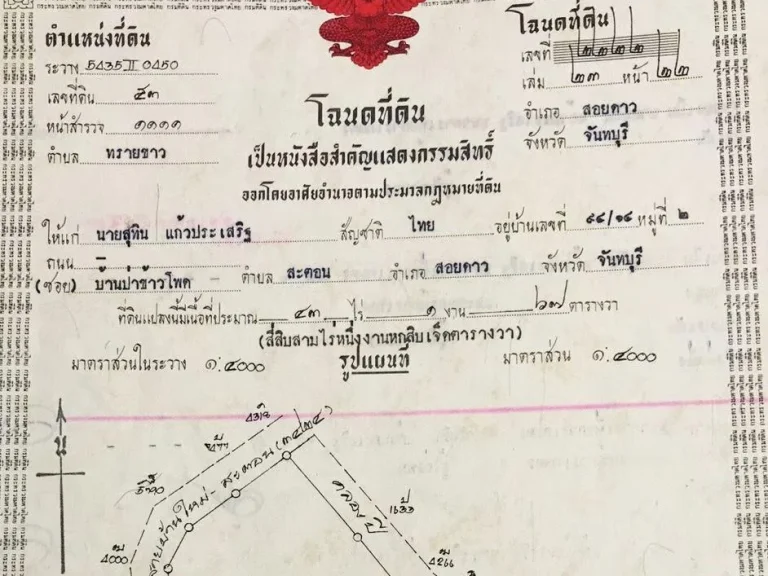 ตำแหน่งที่ดิน
ระวาง 5435 II 0450
เลขที่ดิน ๔๓
หน้าสำรวจ ๑๑๑๑
ตำบล ทรายขาว
โฉนดที่ดิน
เลขที่ ๒๒๒๒
เล่ม ๒๓ หน้า ๒๒
อำเภอ สอยดาว
จังหวัด จันทบุรี
โฉนดที่ดิน
เป็นหนังสือสำคัญแสดงกรรมสิทธิ์
ออกโดยอาศัยอำนาจตามประมวลกฎหมายที่ดิน
ให้แก่ นายสุทิน แก้วประเสริฐ สัญชาติ ไทย อยู่บ้านเลขที่ ๙๔/๑๔ หมู่ที่ ๒
ถนน
(ซอย) บ้านป่าข้าวโพด ตำบล สะตอน อำเภอ สอยดาว จังหวัด จันทบุรี
ที่ดินแปลงนี้มีเนื้อที่ประมาณ ๔๓ ไร่ ๑ งาน ๖๗ ตารางวา
(สี่สิบสามไร่หนึ่งงานหกสิบเจ็ดตารางวา)
มาตราส่วนในระวาง ๑:๔๐๐๐ รูปแผนที่ มาตราส่วน ๑:๔๐๐๐
น
สายบ้านใหม่-สะตอน (๓๔๒๔)
คลองปี